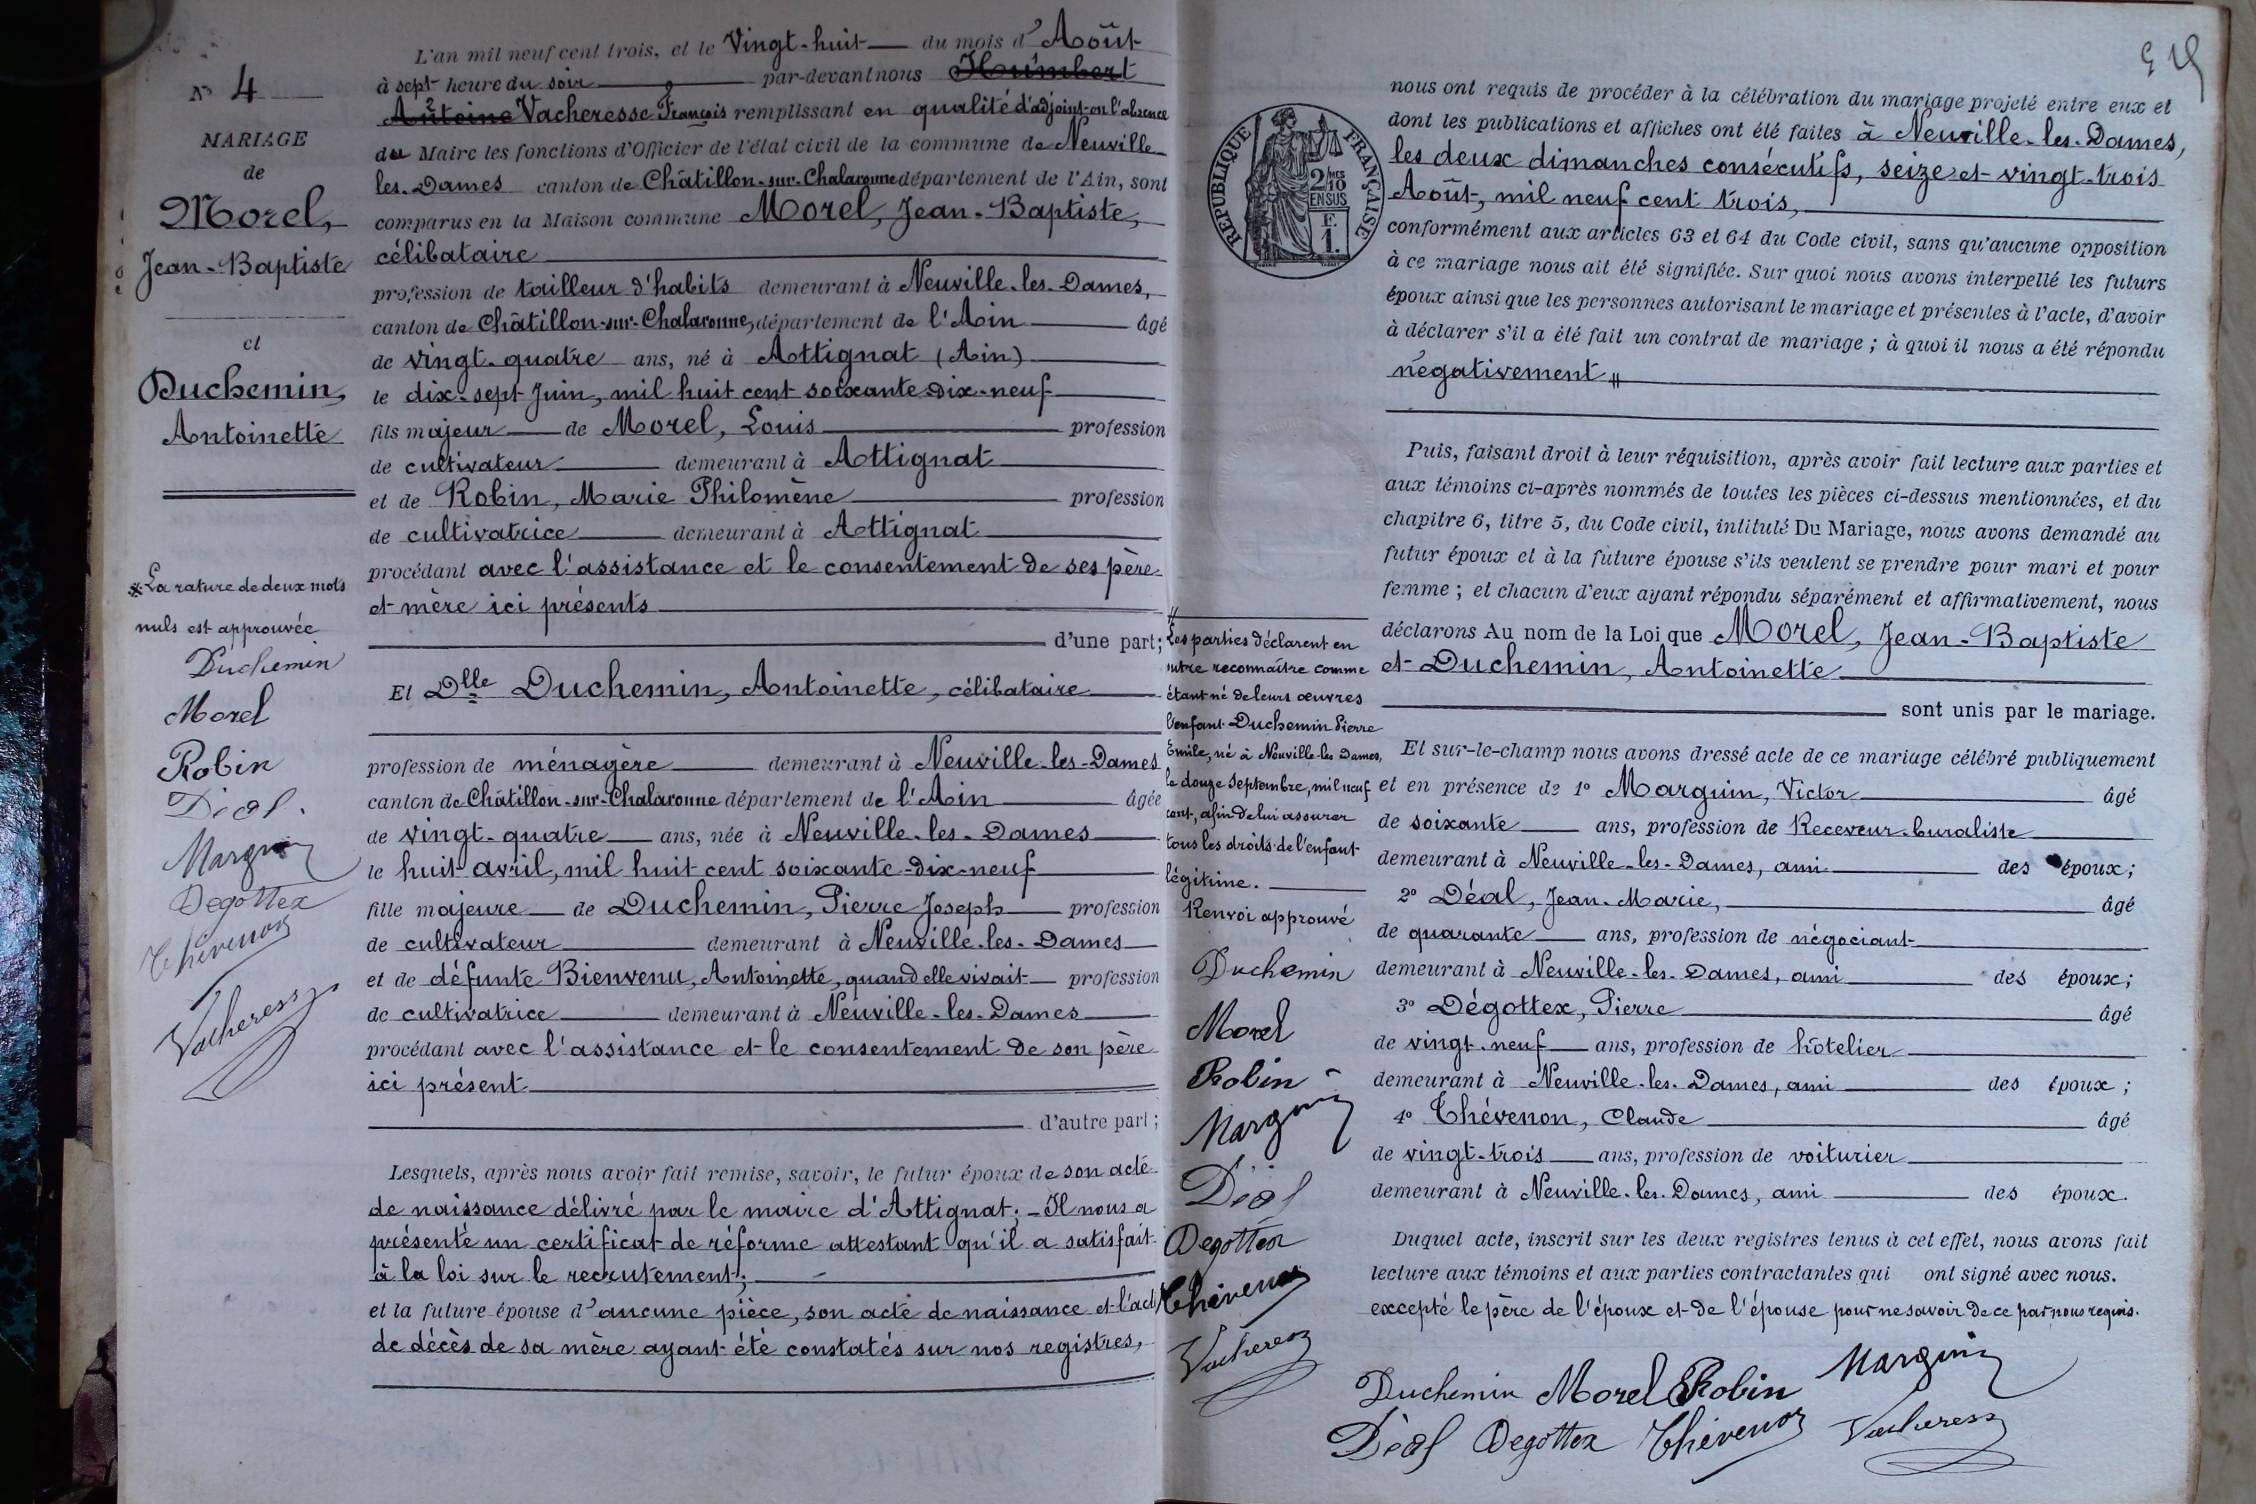 N° 4
MARIAGE
de
Morel,
Jean-Baptiste
et
Duchemin,
Antoinette
※ La rature de deux mots
nuls est approuvée
Duchemin
Morel
Robin
Déal.
Marguin
Degottex
Thévenon
Vacheresse
L'an mil neuf cent trois, et le Vingt-huit du mois d'Août
à sept heure du soir par-devant nous Humbert
Antoine Vacheresse François remplissant en qualité d'adjoint en l'absence
du Maire les fonctions d'Officier de l'état civil de la commune de Neuville-
les-Dames canton de Châtillon-sur-Chalaronne département de l'Ain, sont
comparus en la Maison commune Morel, Jean-Baptiste,
célibataire
profession de tailleur d'habits demeurant à Neuville-les-Dames,
canton de Châtillon-sur-Chalaronne, département de l'Ain âgé
de vingt-quatre ans, né à Attignat (Ain)
le dix-sept Juin, mil huit cent soixante-dix-neuf
fils majeur de Morel, Louis profession
de cultivateur demeurant à Attignat
et de Robin, Marie Philomène profession
de cultivatrice demeurant à Attignat
procédant avec l'assistance et le consentement de ses père
et mère ici présents
d'une part;
Et Dlle Duchemin, Antoinette, célibataire
profession de ménagère demeurant à Neuville-les-Dames
canton de Châtillon-sur-Chalaronne département de l'Ain âgée
de vingt-quatre ans, née à Neuville-les-Dames
le huit avril, mil huit cent soixante-dix-neuf
fille majeure de Duchemin, Pierre Joseph profession
de cultivateur demeurant à Neuville-les-Dames
et de défunte Bienvenu, Antoinette, quand elle vivait profession
de cultivatrice demeurant à Neuville-les-Dames
procédant avec l'assistance et le consentement de son père
ici présent
d'autre part;
Lesquels, après nous avoir fait remise, savoir, le futur époux de son acte
de naissance délivré par le maire d'Attignat; - Il nous a
présenté un certificat de réforme attestant qu'il a satisfait
à la loi sur le recrutement;
et la future épouse d'aucune pièce, son acte de naissance et l'acte
de décès de sa mère ayant été constatés sur nos registres,
RÉPUBLIQUE FRANÇAISE
2/10 MES
EN SUS
F.
1.
nous ont requis de procéder à la célébration du mariage projeté entre eux et
dont les publications et affiches ont été faites à Neuville-les-Dames,
les deux dimanches consécutifs, seize et vingt-trois
Août, mil neuf cent trois,
conformément aux articles 63 et 64 du Code civil, sans qu'aucune opposition
à ce mariage nous ait été signifiée. Sur quoi nous avons interpellé les futurs
époux ainsi que les personnes autorisant le mariage et présentes à l'acte, d'avoir
à déclarer s'il a été fait un contrat de mariage; à quoi il nous a été répondu
négativement #
Puis, faisant droit à leur réquisition, après avoir fait lecture aux parties et
aux témoins ci-après nommés de toutes les pièces ci-dessus mentionnées, et du
chapitre 6, titre 5, du Code civil, intitulé Du Mariage, nous avons demandé au
futur époux et à la future épouse s'ils veulent se prendre pour mari et pour
femme; et chacun d'eux ayant répondu séparément et affirmativement, nous
déclarons Au nom de la Loi que Morel, Jean-Baptiste
et Duchemin, Antoinette
sont unis par le mariage.
Et sur-le-champ nous avons dressé acte de ce mariage célébré publiquement
et en présence de 1° Marguin, Victor âgé
de soixante ans, profession de Receveur-buraliste
demeurant à Neuville-les-Dames, ami des époux;
2° Déal, Jean-Marie, âgé
de quarante ans, profession de négociant
demeurant à Neuville-les-Dames, ami des époux;
3° Dégottex, Pierre âgé
de vingt-neuf ans, profession de hôtelier
demeurant à Neuville-les-Dames, ami des époux;
4° Thévenon, Claude âgé
de vingt-trois ans, profession de voiturier
demeurant à Neuville-les-Dames, ami des époux.
Duquel acte, inscrit sur les deux registres tenus à cet effet, nous avons fait
lecture aux témoins et aux parties contractantes qui ont signé avec nous.
excepté le père de l'époux et de l'épouse pour ne savoir de ce par nous requis.
Duchemin Morel Robin Marguin
Déal Degottex Thévenon Vacheresse
#
Les parties déclarent en
outre reconnaître comme
étant né de leurs œuvres
l'enfant Duchemin Pierre
Emile, né à Neuville-les-Dames,
le douze Septembre, mil neuf
cent, afin de lui assurer
tous les droits de l'enfant
légitime.
Renvoi approuvé
Duchemin
Morel
Robin
Marguin
Déal
Degottex
Thévenon
Vacheresse